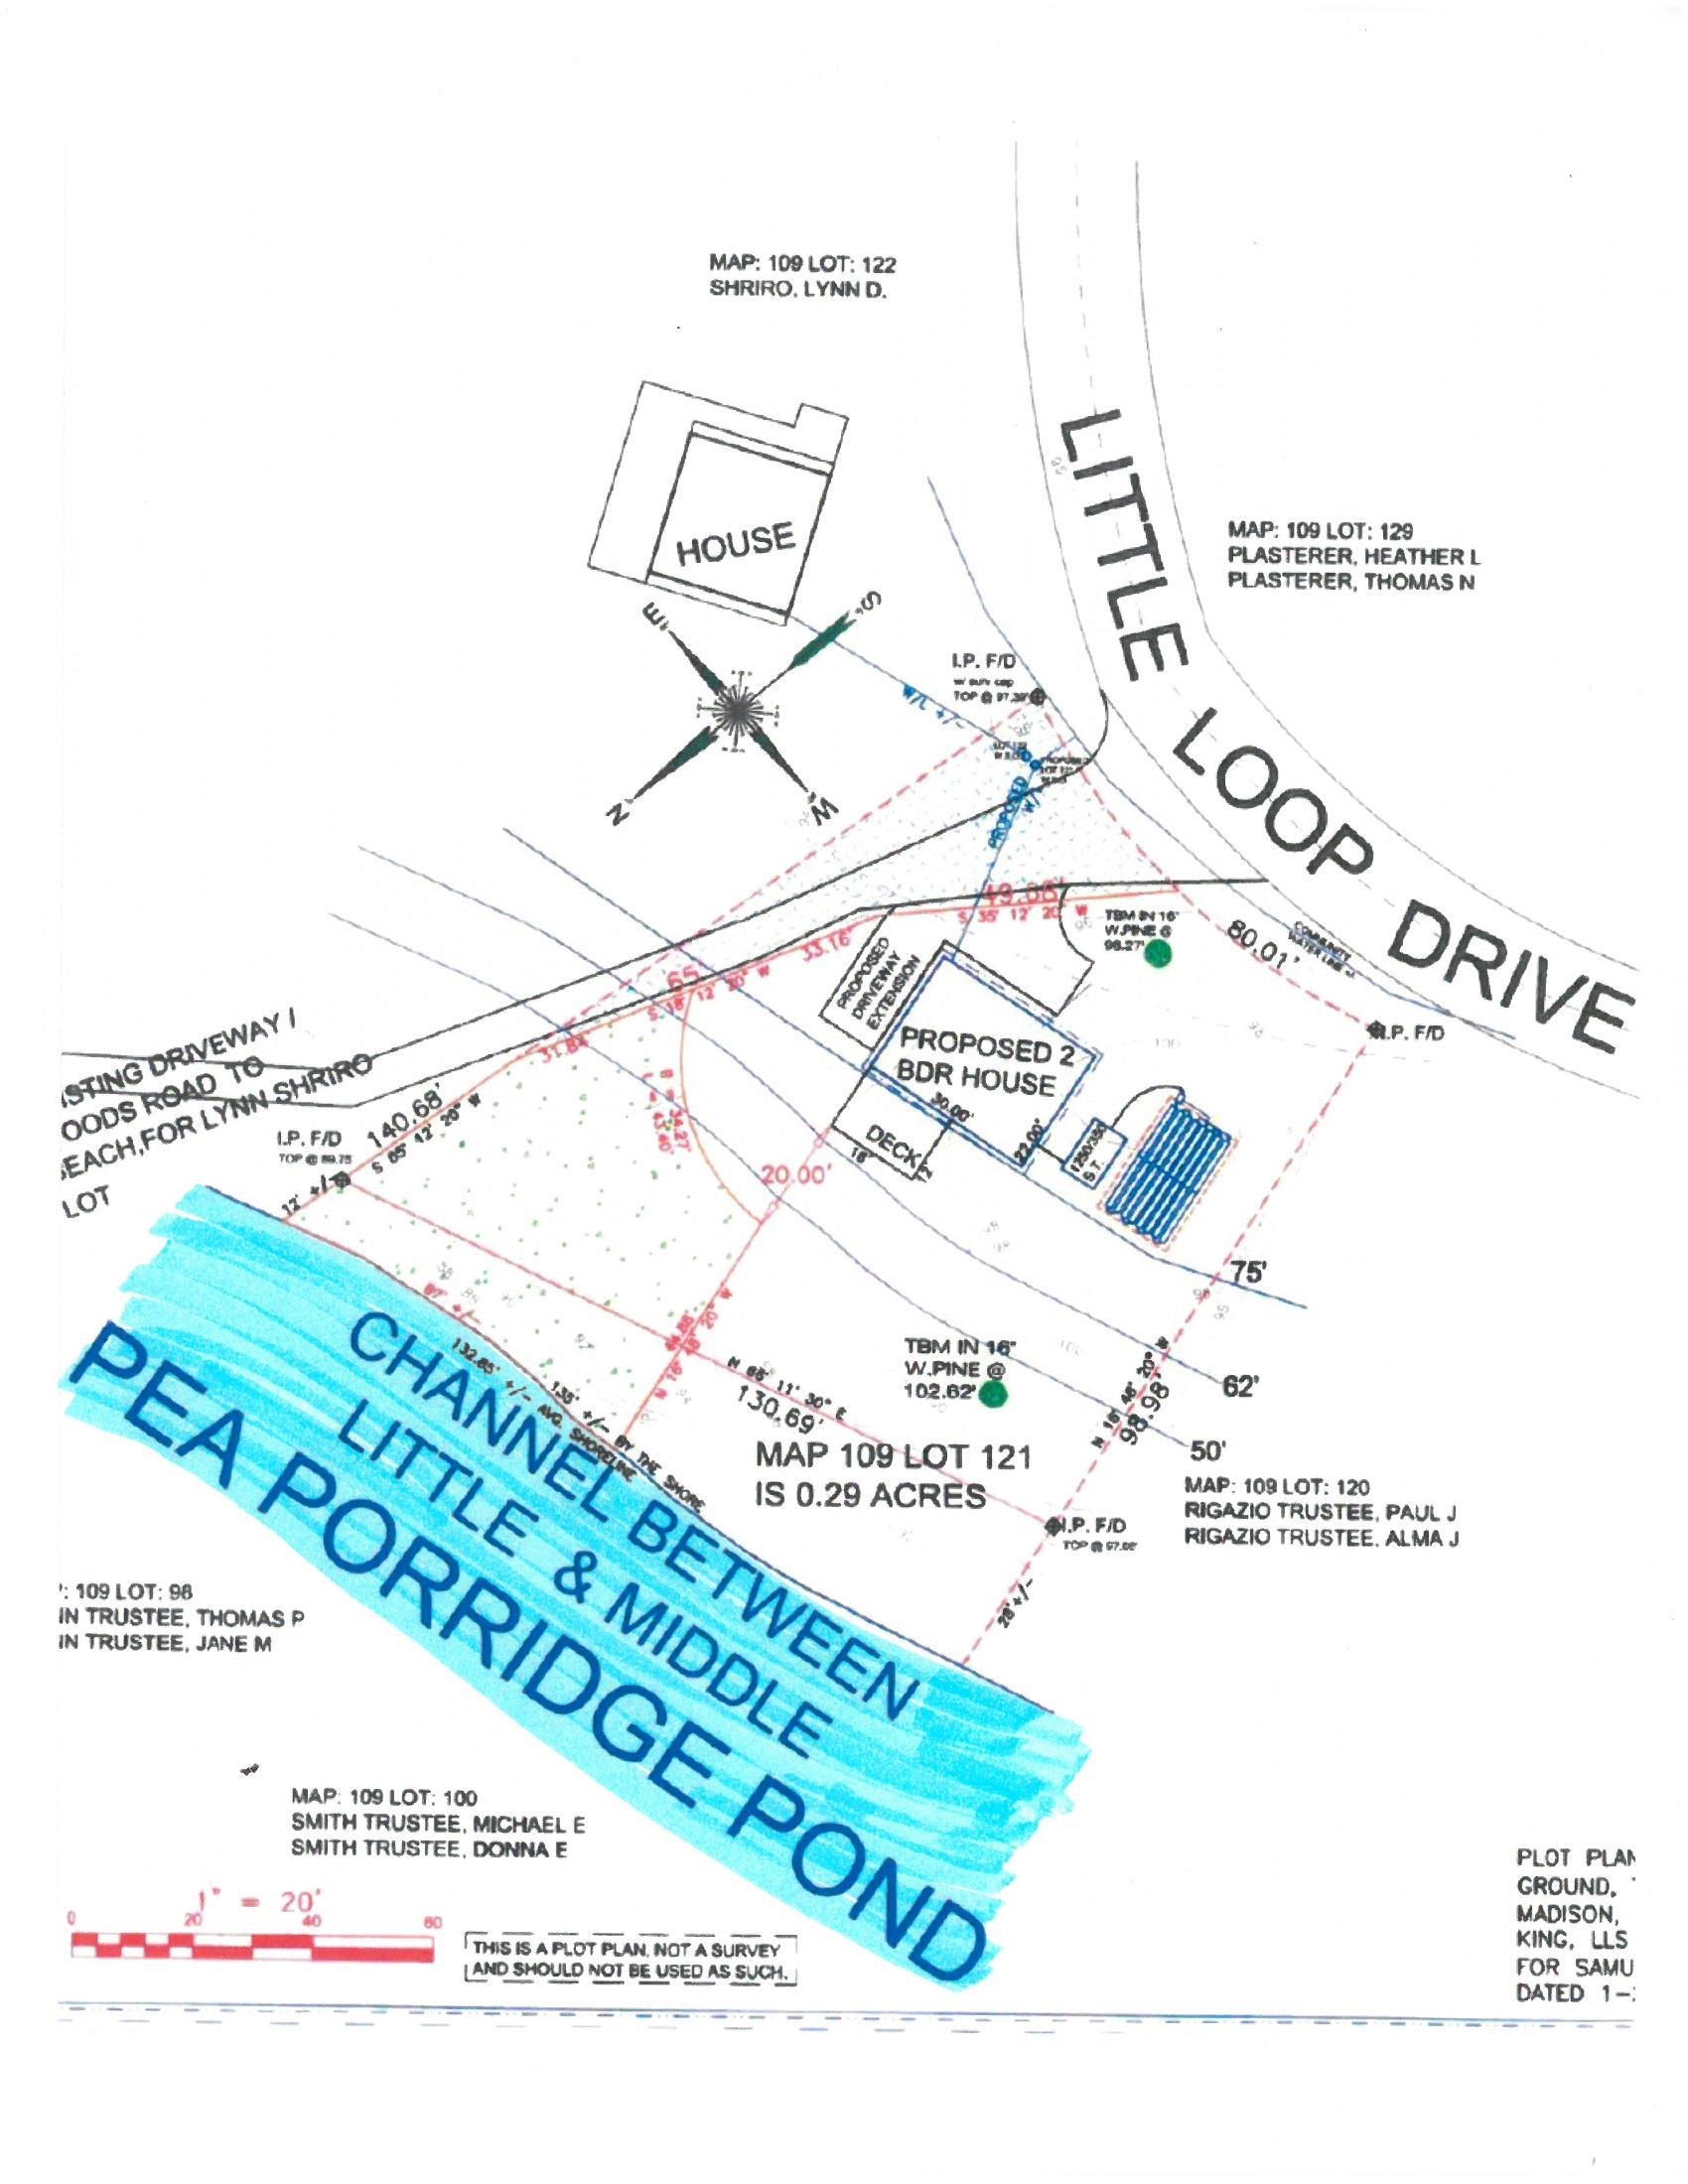 MAP: 109 LOT: 122
SHRIRO, LYNN D.
HOUSE
LITTLE LOOP DRIVE
MAP: 109 LOT: 129
PLASTERER, HEATHER L
PLASTERER, THOMAS N
E
S
N
W
I.P. F/D
W/ surv cap
TOP @ 97.39'
W/L +/-
PROPOSED
W/L
49.08'
S 35° 12' 20" W
TBM IN 16"
W.PINE @
98.27'
80.01'
COMMUNITY
WATER LINE
I.P. F/D
33.16'
65'
S 18° 12' 20" W
31.84
PROPOSED
DRIVEWAY
EXTENSION
PROPOSED 2
BDR HOUSE
30.00'
22.00'
DECK
16'
12'
1250/350
S.T.
100
ISTING DRIVEWAY /
OODS ROAD TO
EACH,FOR LYNN SHRIRO
LOT
140.68'
S 65° 12' 20" W
I.P. F/D
TOP @ 89.75
12' +/-
R = 34.27'
L = 43.40'
20.00'
75'
62'
50'
TBM IN 16"
W.PINE @
102.62'
N 68° 11' 30" E
130.69'
98.98'
MAP 109 LOT 121
IS 0.29 ACRES
I.P. F/D
28'+/-
67' +/-
132.85' +/- AVG. SHORELINE
135' +/- BY THE SHORE
CHANNEL BETWEEN
LITTLE & MIDDLE
PEA PORRIDGE POND
MAP: 109 LOT: 120
RIGAZIO TRUSTEE, PAUL J
RIGAZIO TRUSTEE, ALMA J
: 109 LOT: 98
IN TRUSTEE, THOMAS P
IN TRUSTEE, JANE M
MAP: 109 LOT: 100
SMITH TRUSTEE, MICHAEL E
SMITH TRUSTEE, DONNA E
1" = 20'
0 20 40 60
THIS IS A PLOT PLAN, NOT A SURVEY
AND SHOULD NOT BE USED AS SUCH.
PLOT PLAN
GROUND,
MADISON,
KING, LLS
FOR SAMU
DATED 1-